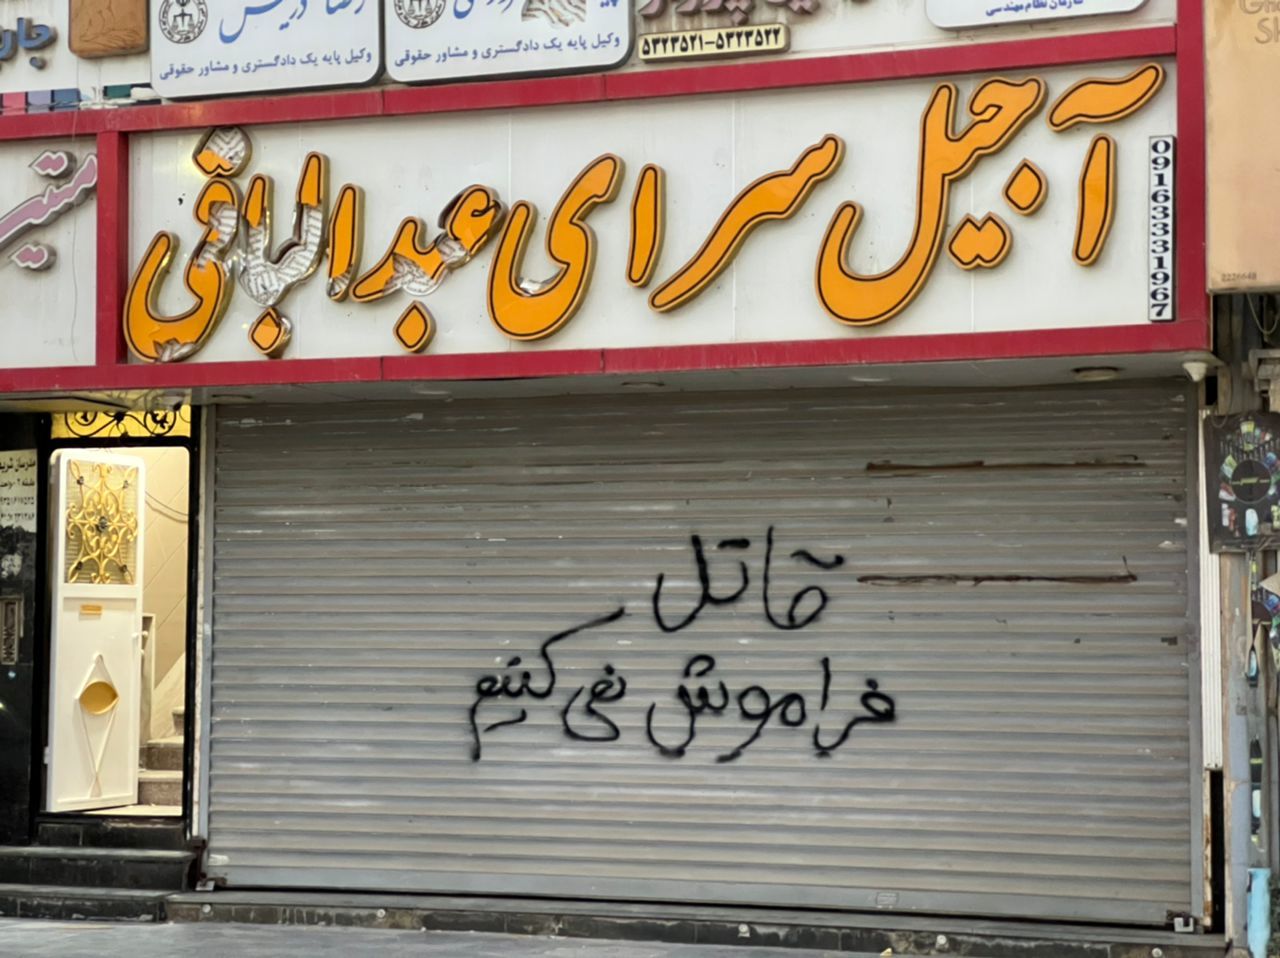 وکیل پایه یک دادگستری و مشاور حقوقی
وکیل پایه یک دادگستری و مشاور حقوقی
۵۳۲۳۵۲۱-۵۳۲۳۵۲۲
سازمان نظام مهندسی
آجیل سرای عبدالباقی
09163331967
قاتل
فراموش نمی کنیم
2226648